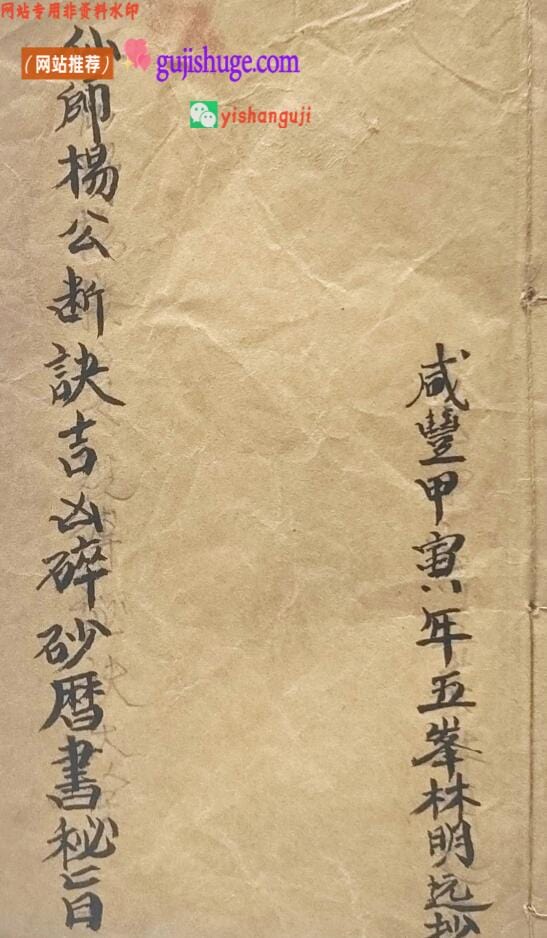 网站专用非资料水印
(网站推荐) gujishuge.com
yishanguji
咸豐甲寅年五峯林明远抄
仙師楊公断訣吉凶碎砂曆書秘旨